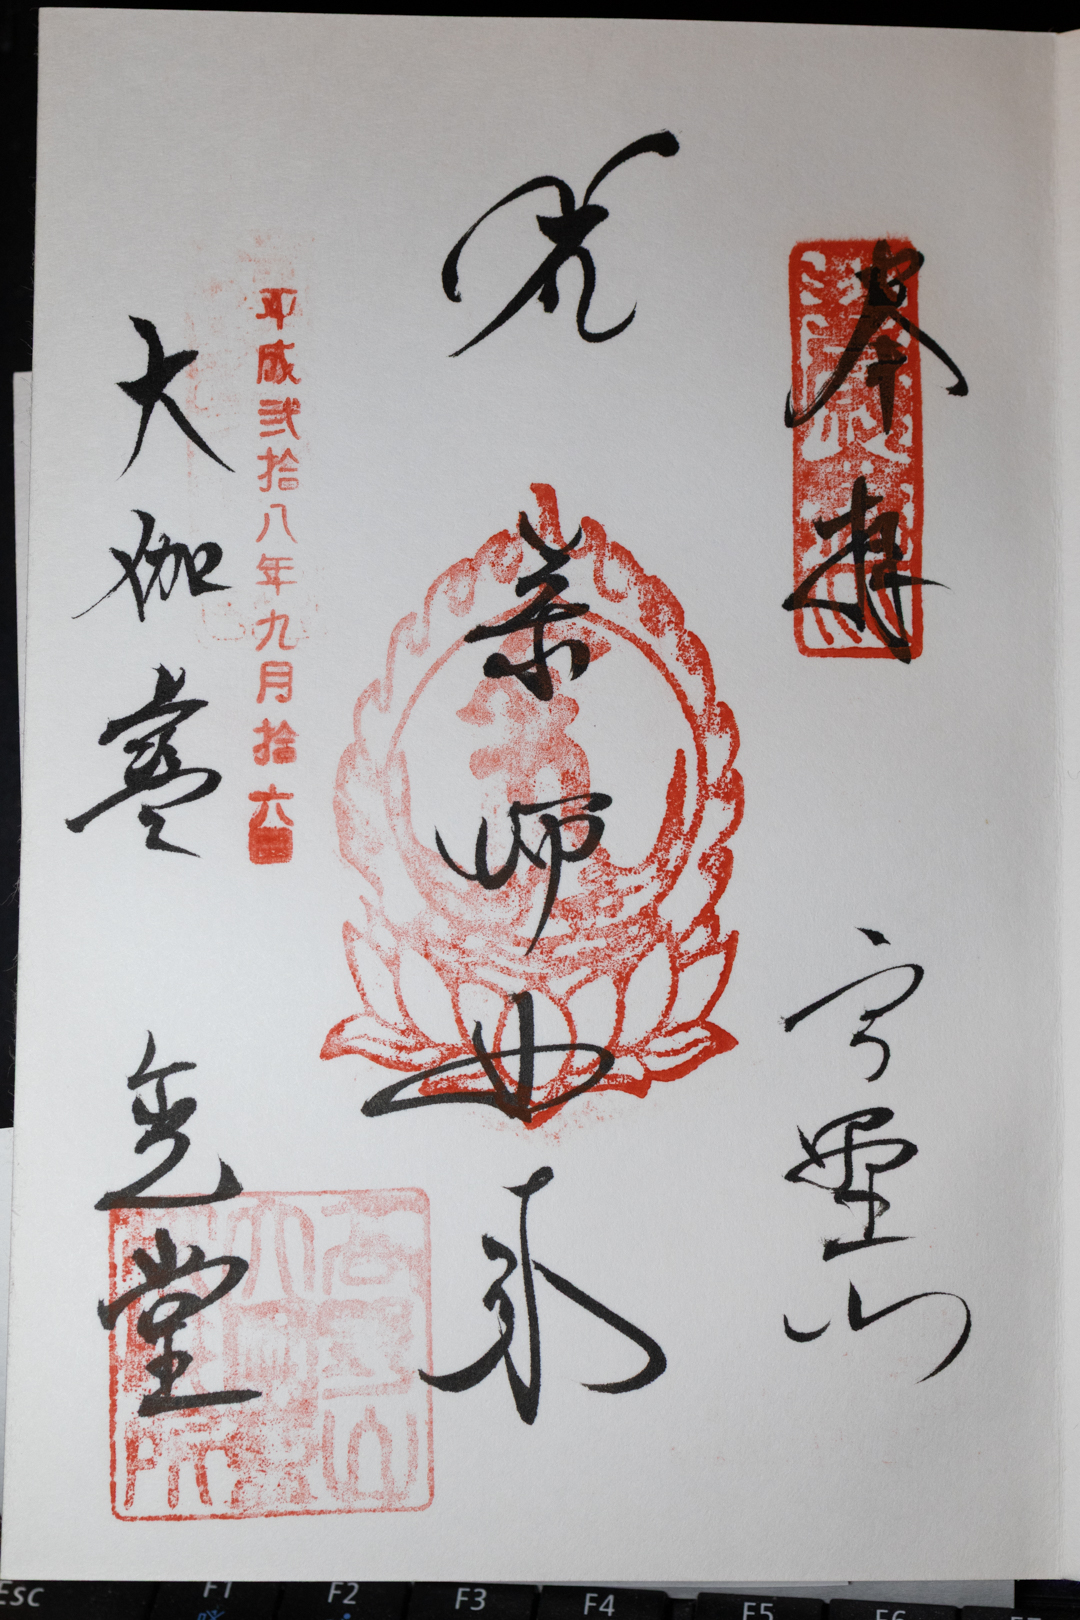 奉拝
高野山
薬師如来
平成弐拾八年九月拾六日
大伽藍
金堂
高野山
大伽藍
Esc F1 F2 F3 F4 F5 F6